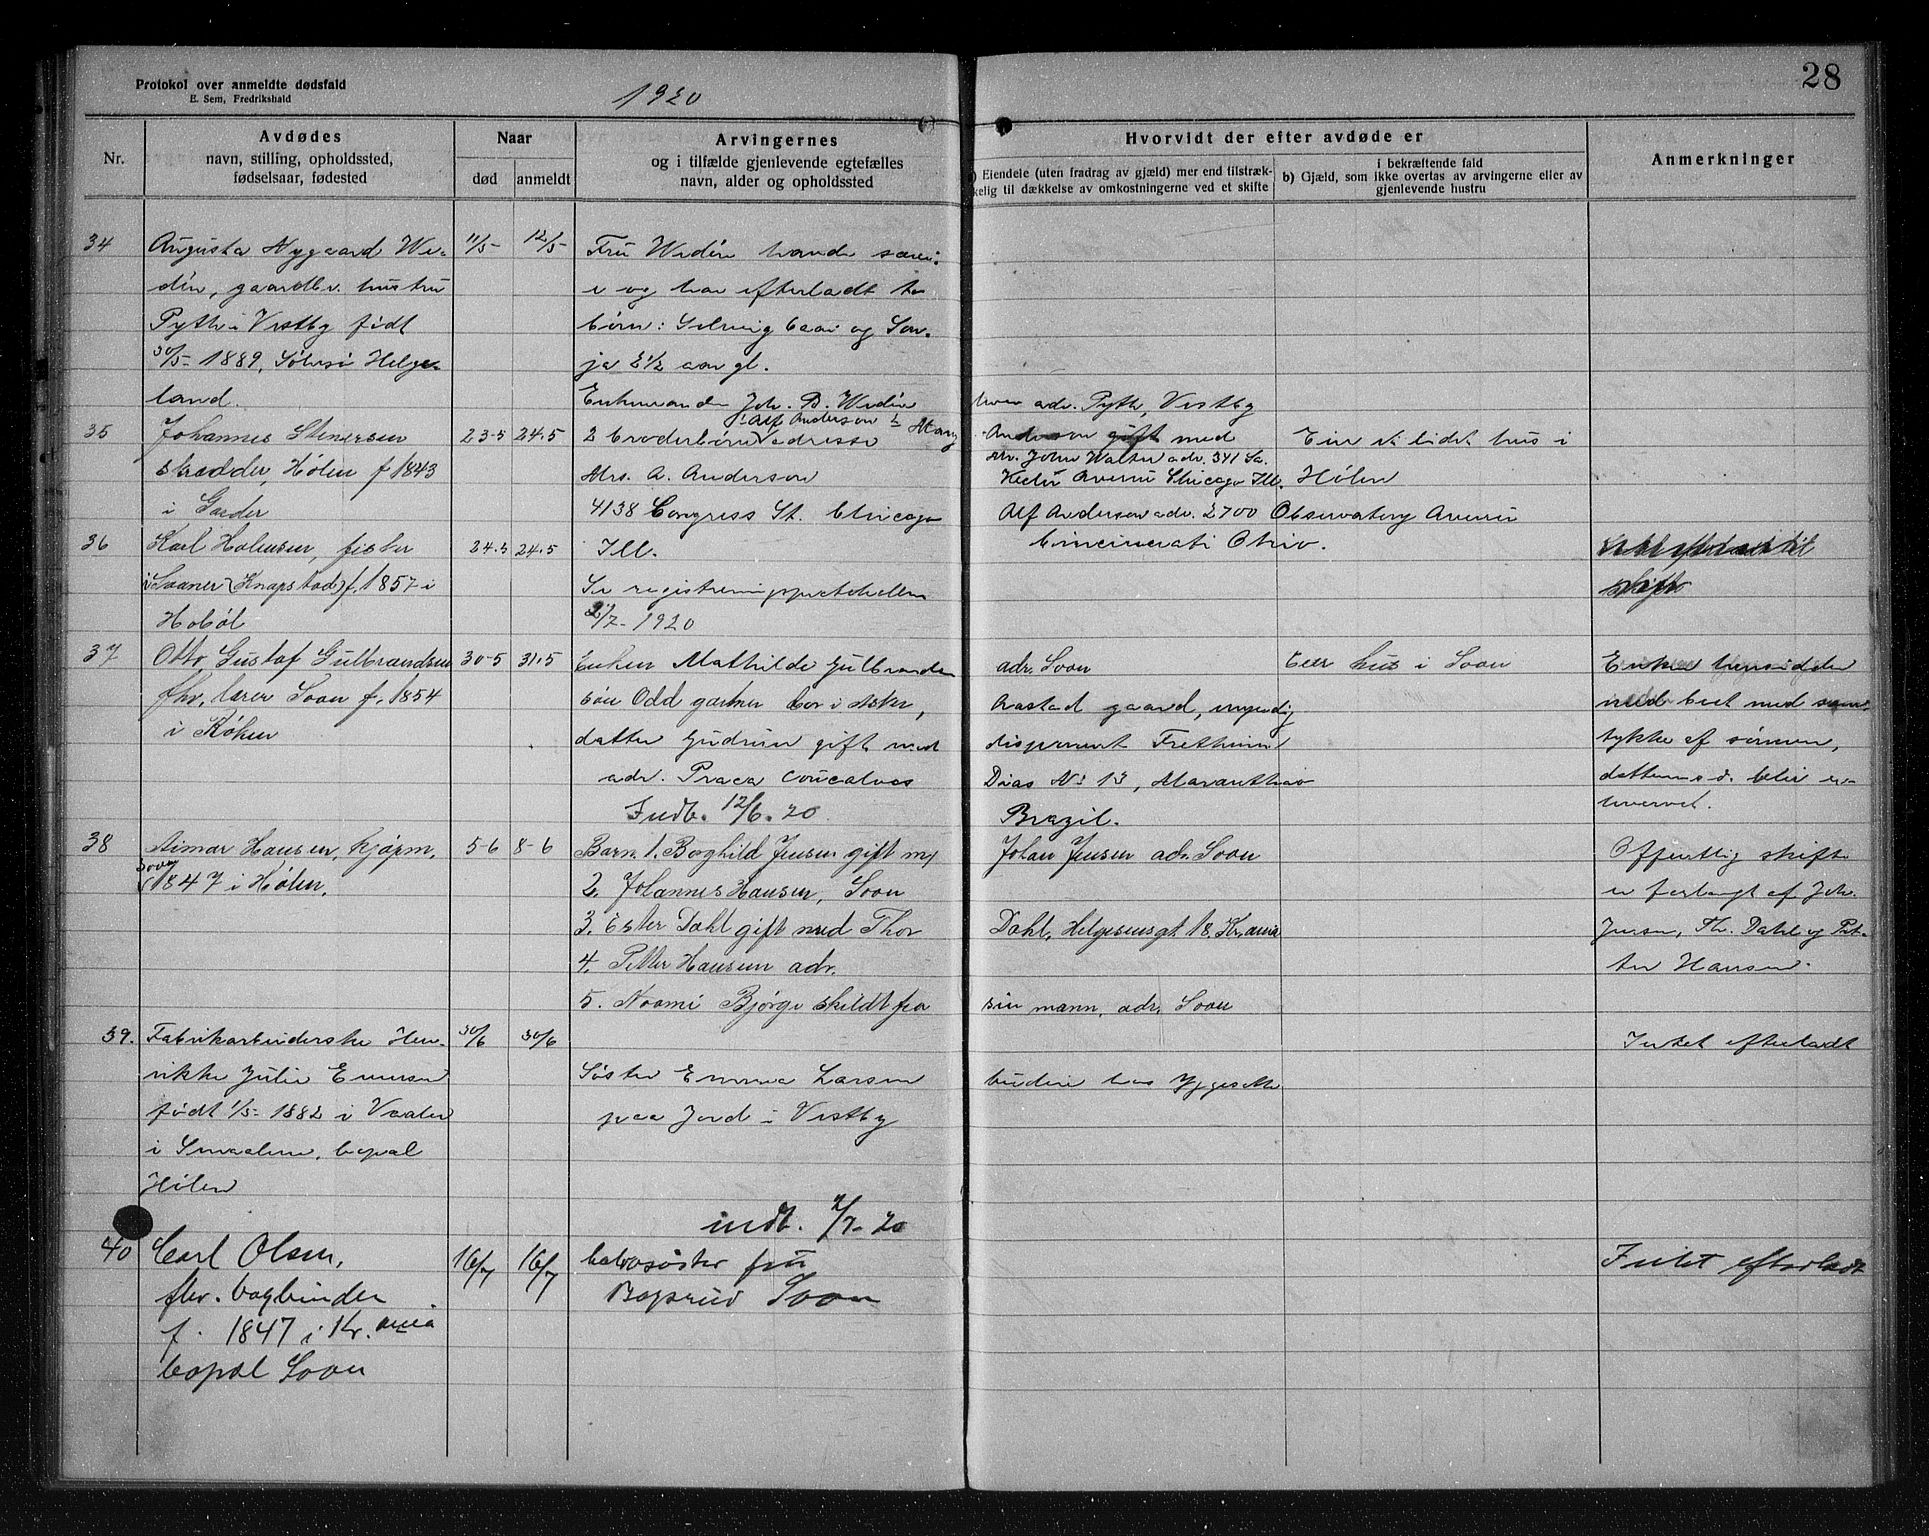 Protokol over anmeldte dødsfald
E. Sem, Fredrikshald
1920
28
Nr.
Avdødes
navn, stilling, opholdssted,
fødselsaar, fødested
Naar
død
anmeldt
Arvingernes
og i tilfælde gjenlevende egtefælles
navn, alder og opholdssted
Hvorvidt der efter avdøde er
a) Eiendele (uten fradrag av gjæld) mer end tilstræk-
kelig til dækkelse av omkostningerne ved et skifte
i bekræftende fald
b) Gjæld, som ikke overtas av arvingerne eller av
gjenlevende hustru
Anmerkninger
34
Augusta Nygaard We-
dén, gaardbr. hustru
Pyth i Vestby født
30/5-1889, Helge-
land.
11/5-
12/5-
Fru Wedén havde
og har efterladt to
børn: Solveig 6 aar og Son-
ja 2 1/2 aar gl.
Enkemanden Joh. B. Wedén
adr. Pyth, Vestby
35
Johannes Stenersen
skrædder, Hølen f. 1843
i Garder
23-5
24.5
1 Alf Anderson 2 Mary
2 broderbørn adresse
Mrs. A. Anderson
4138 Congress St. Chicago
Ill.
Anderson gift med
Mr. John Walter adr. 341 So.
Avenue Chicago Ill.
Alf Anderson adr. 2700 Observatory Avenue
Cincinnati Ohio.
Et lidet hus i
Hølen
36
Karl Halvorsen, fisker
i Saaner (Knapstad) f. 1857 i
Hobøl
24.5
24.5
Se registreringsprotokollen
2/7-1920
37
Otto Gustaf Gulbrandsen
fhv. lærer Soon f. 1854
i Røken
30-5
31.5
Enken Mathilde Gulbrandsen
søn Odd gartner bor i Asker,
datter Gudrun gift med
adr. Praca Concalves
Indb. 12/6.20
adr. Soon
Aastad gaard, myndig
disponent Fretheim
Dias No 13, Maranthao
Brazil.
Eier hus i Soon
Enken hensidder
med boet med sam-
tykke af sønnen,
datterens d. blir er-
hvervet.
38
Aimar Hansen, kjøpm,
Soon
f. 1847 i Hølen,
5-6
8-6
Barn. 1. Borghild Jensen gift m/
2. Johannes Hansen, Soon
3. Ester Dahl gift med Thor
4. Petter Hansen adr.
5. Noomi Bjørge skildt fra
Johan Jensen adr. Soon
Dahl, Helgesensgt 18, Kr.ania
sin mann, adr. Soon
Offentlig skifte
er forlangt af Joh.
Jensen, Th. Dahl og Pet-
ter Hansen.
39.
Fabrikarbeiderske Hen-
rikke Julie Enersen
født 1/5-1882 i Vaaler
i Smaalene, bopæl
Hølen
30/6
30/6
Søster Emma Larsen
paa Jord i Vestby
budeie hos Yggeseth
Intet efterladt
indb. 2/7-20
40
Carl Olsen,
fhv. bogbinder
f. 1847 i Kr.ania
bopæl Soon
16/7
16/7
Halvsøster fru
Bogerud Soon
Intet efterladt